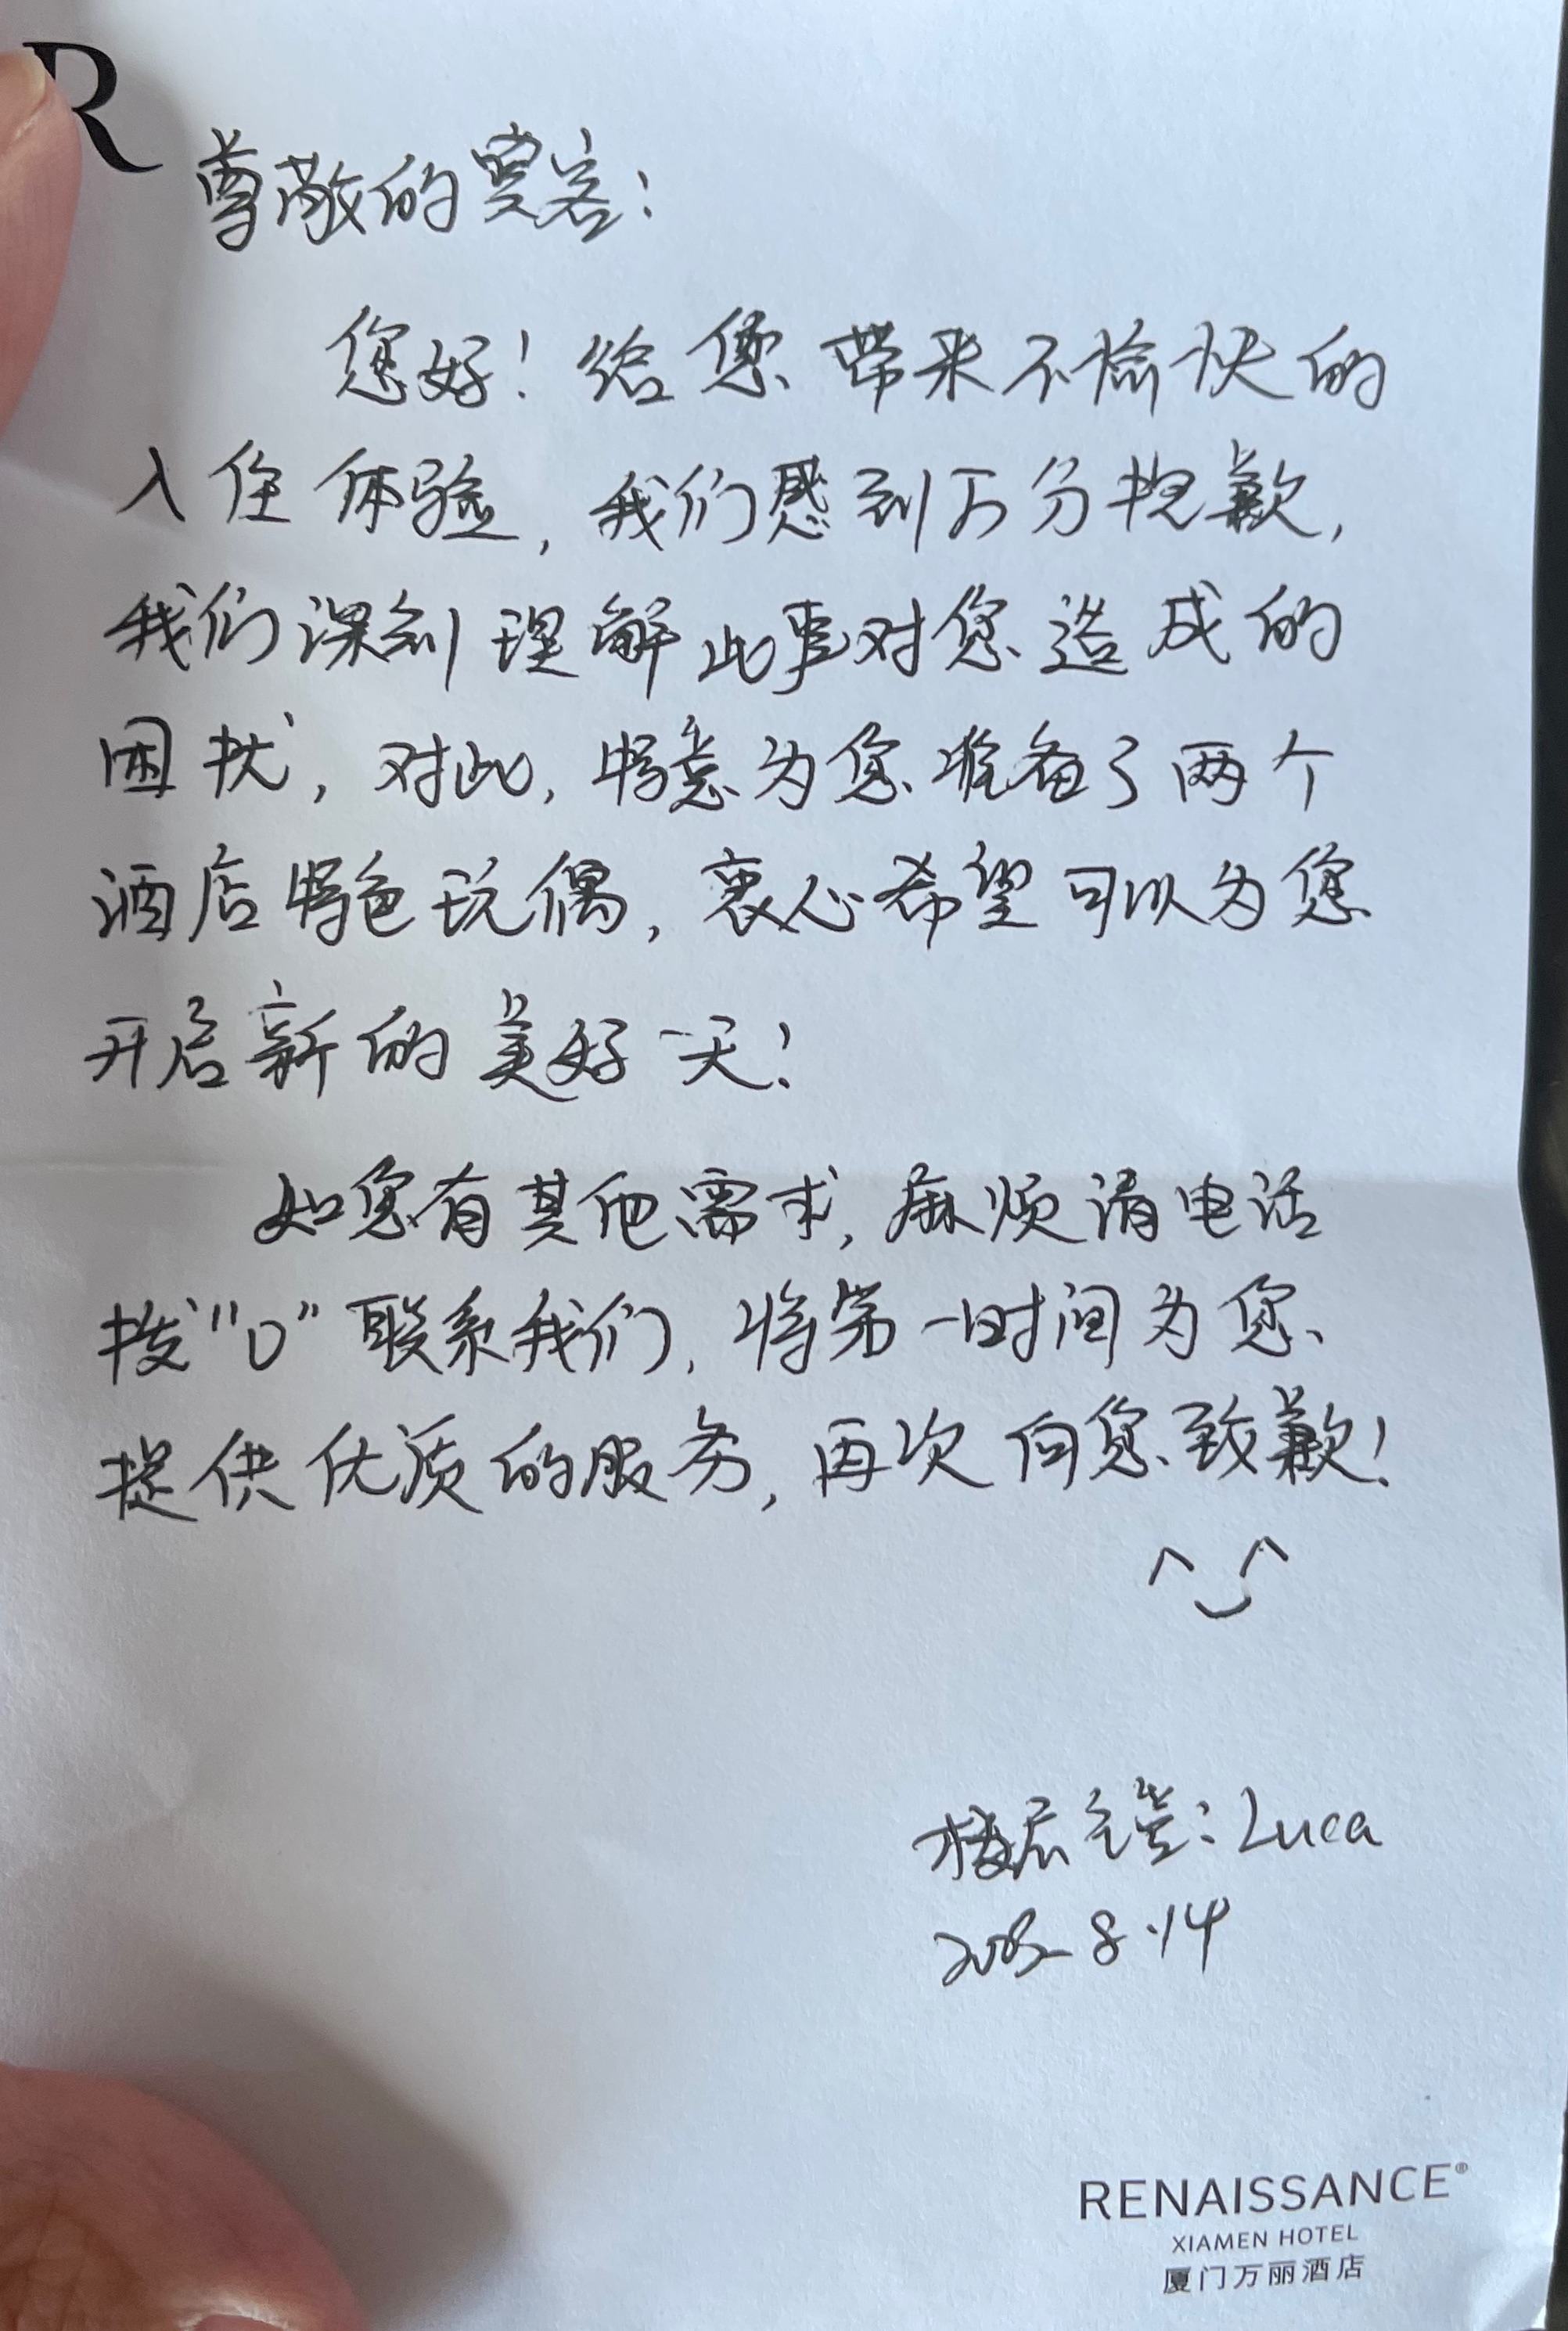 R
尊敬的宾客：
您好！给您带来不愉快的
入住体验，我们感到万分抱歉，
我们深刻理解此事对您造成的
困扰，对此，特意为您准备了两个
酒店特色玩偶，衷心希望可以为您
开启新的美好一天！
如您有其他需求，麻烦请电话
拨“0”联系我们，将第一时间为您
提供优质的服务，再次向您致歉！
楼层主管：Luca
8.14
RENAISSANCE®
XIAMEN HOTEL
厦门万丽酒店